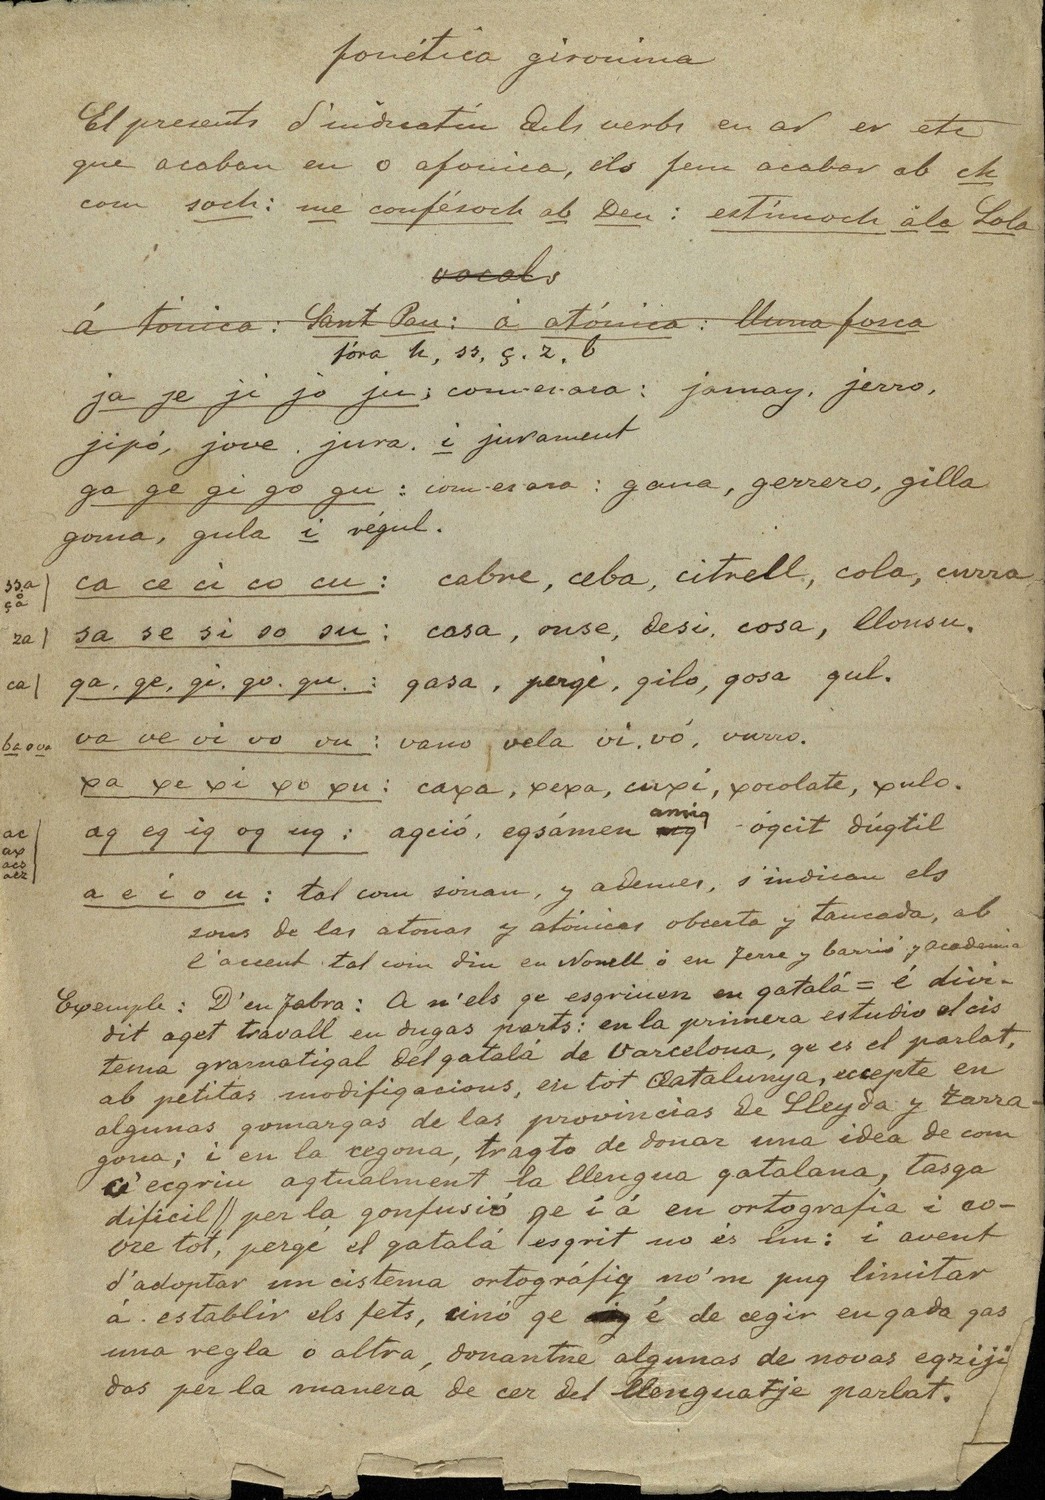 fonética gironina
El presents d'indicatiu dels verbs en ar er etc
que acaban en o afonica, els fem acabar ab ch
com soch: me confésoch ab Deu: estimoch á la Lola
vocals
á tónica: Sant Pau: á atónica: lluna fosca
fóra h, ss, ç. z. b
ja je ji jo ju: com es ara: jamay, jerro,
jipó, jove. jura. i jurament
ga ge gi go gu: com es ara: gana, gerrero, gilla
goma, gula i régul.
ssa
ça
ca ce ci co cu: cabre, ceba, citrell, cola, curra
za
sa se si so su: casa, onse, desi, cosa, llonsu.
ca
qa, qe, qi, qo, qu: qasa, perqé, qilo, qosa qul.
ba o va
va ve vi vo vu: vano vela vi, vó, vurro.
xa xe xi xo xu: caxa, xexa, cuxí, xocolate, xulo.
ac
ax
acs
acz
aq eq iq oq uq: aqció, eqsámen amiq óqcit dúqtil
a e i o u: tal com sónan, y ademes, s'indican els
sons de las atonas y atónicas oberta y tancada, ab
l'accent tal com diu en Nonell ó en Ferre y barrió y academia
Exemple: D'en Fabra: A n'els qe esqriuen en qatalá = é divi-
dit aqet travall en duqas parts: en la primera estudio el cis
tema gramatiqal del qatalá de Varcelona, qe es el parlat,
ab petitas modifiqacions, en tot Qatalunya, ecepte en
algunas qomarqas de las provincias de Lleyda y Tarra-
gona; i en la cegona, traqto de donar una idea de com
c'ecqriu aqtualment la llengua qatalana, tasqa
dificil // per la qonfusió qe i á en ortografia i co-
vre tót, perqé el qatalá esqrit no és un: i avent
d'adoptar un cistema ortográfiq no'm puq limitar
á establir els fets, cinó qe é de cegir en qada qas
una regla o altra, donantne algunas de novas eqziji
das per la manera de cer del llenguatje parlat.